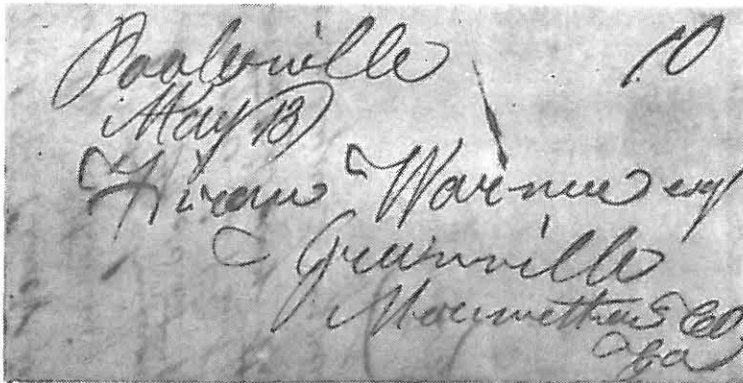 Pooleville 10
May 13
Hiram Warner esq
Greenville
Meriwether Co
Ga